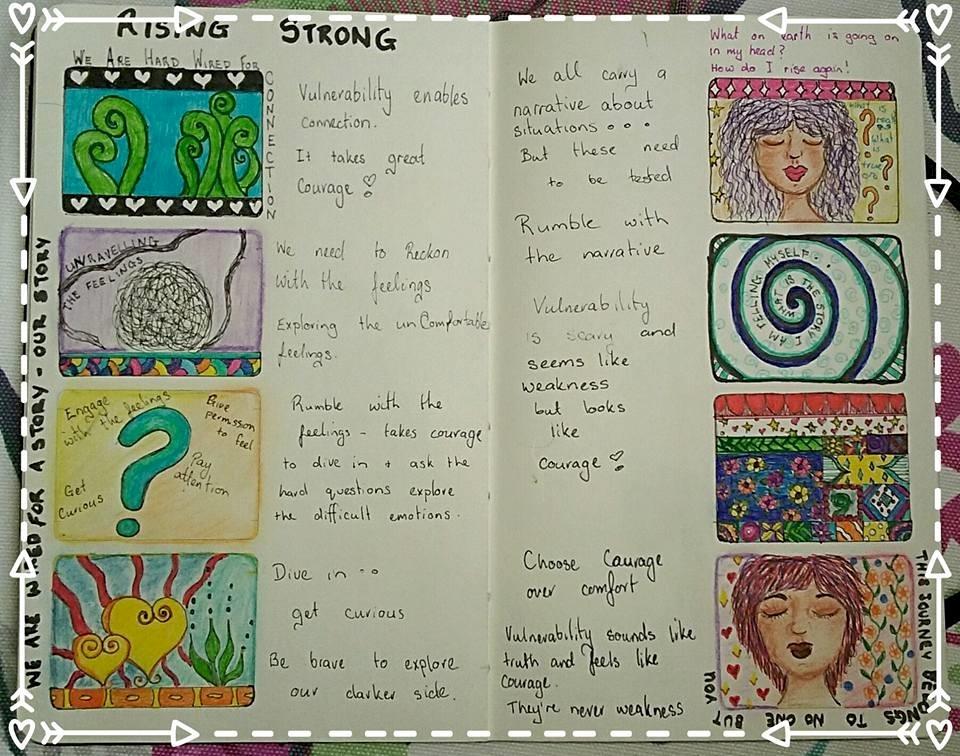 RISING STRONG
WE ARE HARD WIRED FOR
CONNECTION
Vulnerability enables
connection.
It takes great
Courage
UNRAVELLING
THE FEELINGS
We need to Reckon
with the feelings
Exploring the unComfortable
feelings.
Engage
with the feelings
Give
permission
to feel
Pay
attention
Get
Curious
Rumble with the
feelings - takes courage
to dive in + ask the
hard questions explore
the difficult emotions.
Dive in
get curious
Be brave to explore
our darker side.
WE ARE WIRED FOR A STORY - OUR STORY
What on earth is going on
in my head?
How do I rise again!
We all carry a
narrative about
situations...
But these need
to be tested
what is
real?
What
is
true
???
Rumble with
the narrative
WHAT IS THE STORY I AM TELLING MYSELF..
Vulnerability
is scary and
seems like
weakness
but looks
like
courage
Choose Courage
over comfort
Vulnerability sounds like
truth and feels like
Courage.
They're never weakness
THIS JOURNEY BELONGS
TO NO ONE BUT
YOU